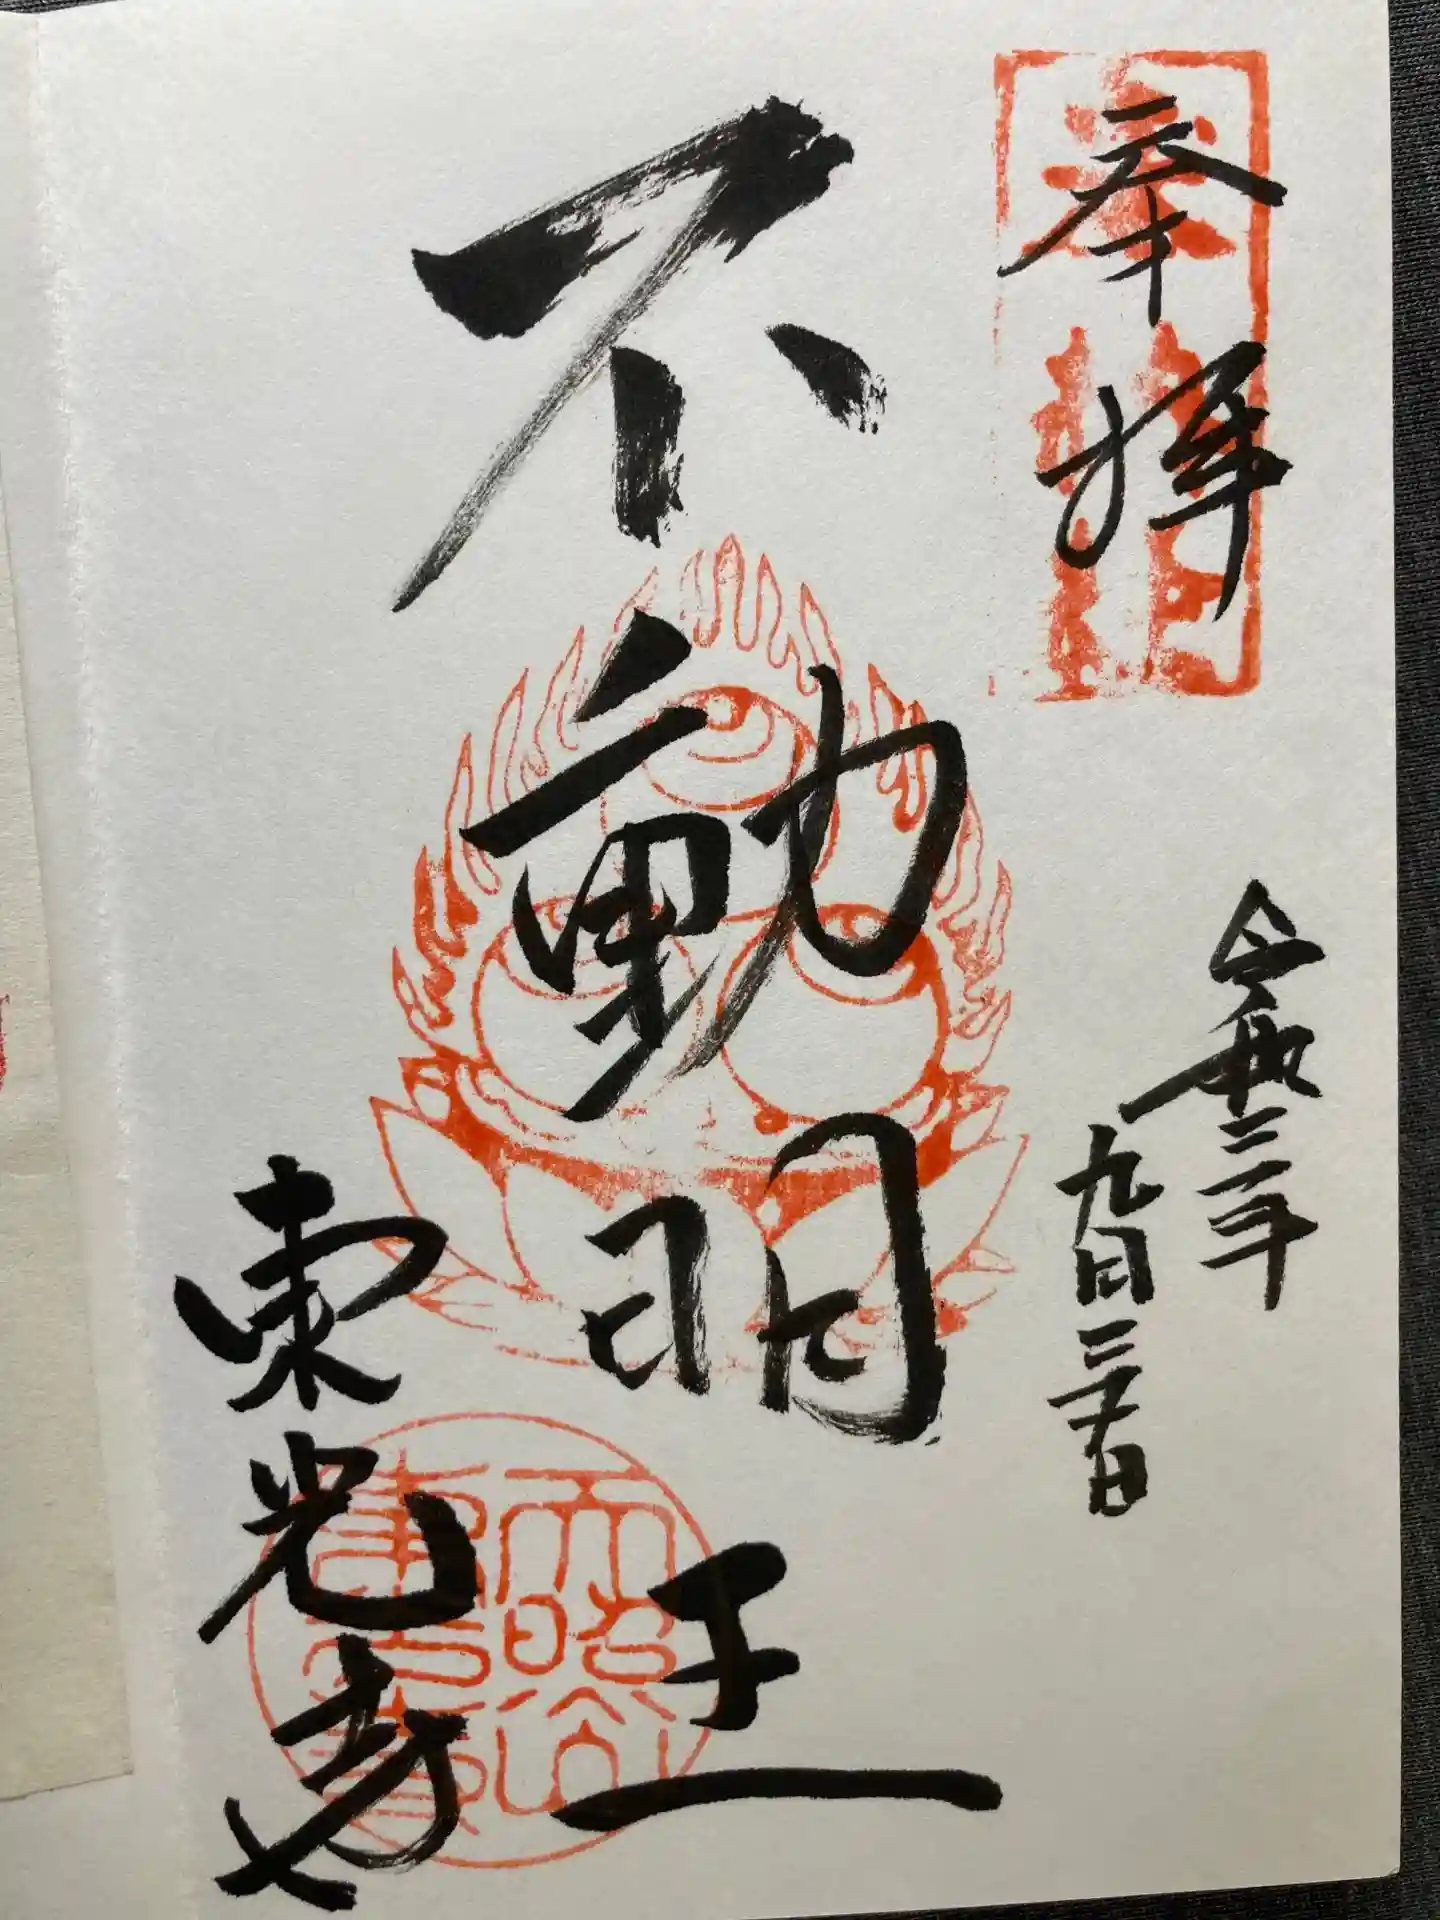 奉拝
令和三年
九月三十日
不動明王
東光寺